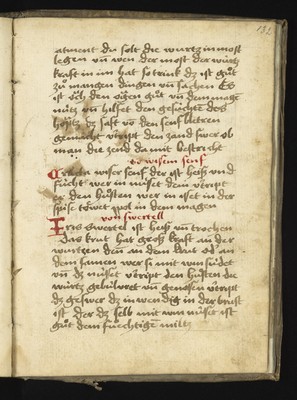 132
atment du solt die wurtz in most
legen vn̄ wen der most der wurtz
kraft in im hat so trink dz ist gůt
zů mangen dingen vn̄ sachen Es
ist och den ogen gůt vn̄ dem mage
nutz vn̄ hilfet den gesücht des
dz saft vō den senf bletren
gemacht vertript den zand swer ob
man die zend da mit bestricht
wissem senf
wisser senf der ist heiss vnd
fücht wer in nüsset dem vertript
er den hůsten wer in isset in der
spise in dem magen
von swertell
Iris Swertel ist heiss vn̄ trochen
das krut hat gross kraft an der
wurtzen den an dem krut od an
dem samen wer si mit win südet
vn̄ dz nüsset vertript den hůsten die
würtz gebulvret vn̄ genossen v̄tript
dz geswer dz inwendig in der brust
ist der dz selb mit win nüsset ist
gůt dem miltz